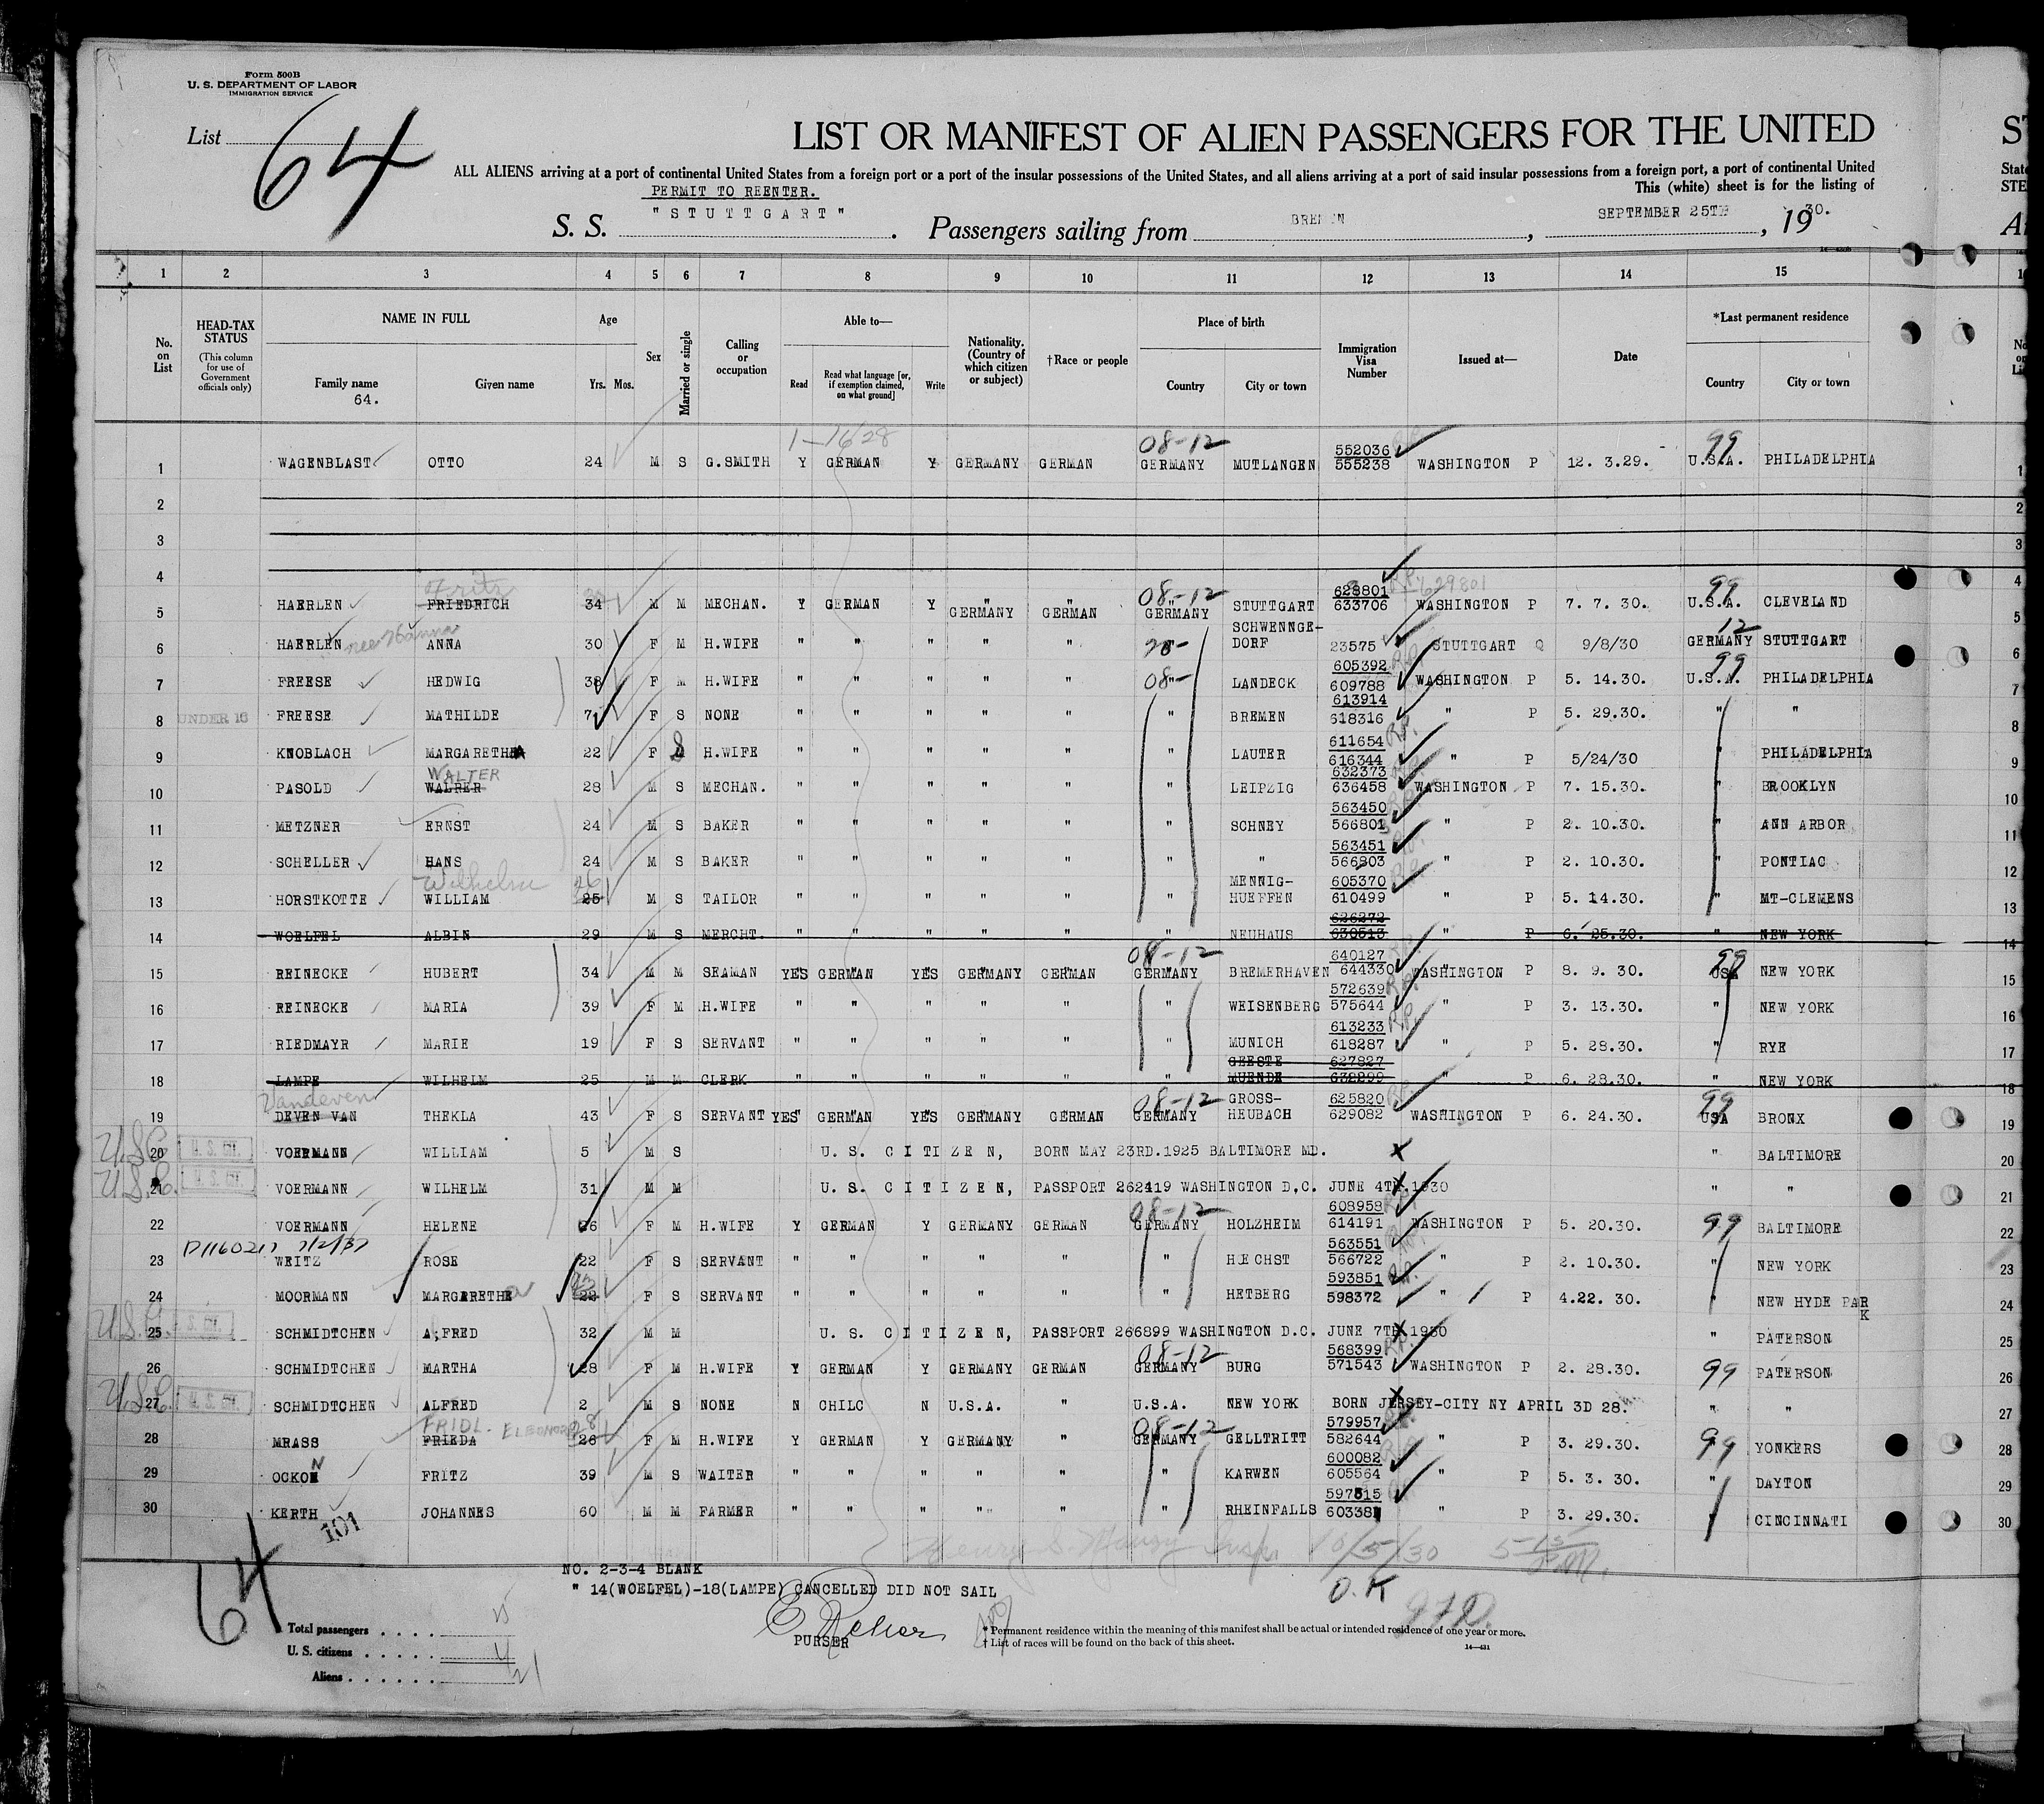 Form 500B
U. S. DEPARTMENT OF LABOR
IMMIGRATION SERVICE
List 64
LIST OR MANIFEST OF ALIEN PASSENGERS FOR THE UNITED
ALL ALIENS arriving at a port of continental United States from a foreign port or a port of the insular possessions of the United States, and all aliens arriving at a port of said insular possessions from a foreign port, a port of continental United
PERMIT TO REENTER. This (white) sheet is for the listing of
S. S. "STUTTGART" . Passengers sailing from BREMEN , SEPTEMBER 25TH , 19 30.
1 2 3 4 5 6 7 8 9 10 11 12 13 14 15
No. on List
HEAD-TAX STATUS (This column for use of Government officials only)
NAME IN FULL Family name Given name
64.
Age Yrs. Mos.
Sex
Married or single
Calling or occupation
Able to— Read Read what language [or, if exemption claimed, on what ground] Write
Nationality. (Country of which citizen or subject)
†Race or people
Place of birth Country City or town
Immigration Visa Number
Issued at—
Date
*Last permanent residence Country City or town
1-16/28 08-12 552036 99
1 WAGENBLAST OTTO 24 M S G.SMITH Y GERMAN Y GERMANY GERMAN GERMANY MUTLANGEN 555238 WASHINGTON P 12. 3.29. U.S.A. PHILADELPHIA
2
3
4
Fritz 08-12 628801 R.P. 629801 99
5 HAERLEN FRIEDRICH 34 M M MECHAN. Y GERMAN Y GERMANY GERMAN GERMANY STUTTGART 633706 WASHINGTON P 7. 7. 30. U.S.A. CLEVELAND
SCHWENNGE- 12
6 HAERLEN ANNA 30 F M H.WIFE " " " " " DORF 23575 STUTTGART Q 9/8/30 GERMANY STUTTGART
605392 99
7 FREESE HEDWIG 38 F M H.WIFE " " " " " 08- LANDECK 609788 WASHINGTON P 5. 14.30. U.S.A. PHILADELPHIA
613914
8 UNDER 16 FREESE MATHILDE 7 F S NONE " " " " " " BREMEN 618316 " P 5. 29.30. " "
611654
9 KNOBLACH MARGARETHA 22 F S H.WIFE " " " " " " LAUTER 616344 " P 5/24/30 " PHILADELPHIA
WALTER 632373
10 PASOLD WALRER 28 M S MECHAN. " " " " " " LEIPZIG 636458 WASHINGTON P 7. 15.30. " BROOKLYN
563450
11 METZNER ERNST 24 M S BAKER " " " " " " SCHNEY 566801 " P 2. 10.30. " ANN ARBOR
563451
12 SCHELLER HANS 24 M S BAKER " " " " " " " 566803 " P 2. 10.30. " PONTIAC
Wilhelm 26 MENNIG- 605370
13 HORSTKOTTE WILLIAM 25 M S TAILOR " " " " " " HUEFFEN 610499 " P 5. 14.30. " MT-CLEMENS
626272
14 WOELFEL ALBIN 29 M S MERCHT. " " " " " " NEUHAUS 630513 " P 6. 25.30. " NEW YORK
08-12 640127 99
15 REINECKE HUBERT 34 M M SEAMAN YES GERMAN YES GERMANY GERMAN GERMANY BREMERHAVEN 644330 WASHINGTON P 8. 9. 30. USA NEW YORK
572639
16 REINECKE MARIA 39 F M H.WIFE " " " " " " WEISENBERG 575644 " P 3. 13.30. " NEW YORK
613233
17 RIEDMAYR MARIE 19 F S SERVANT " " " " " " MUNICH 618287 " P 5. 28.30. " RYE
GEESTE 627827
18 LAMPE WILHELM 25 M M CLERK " " " " " " MUENDE 632299 " P 6. 28.30. " NEW YORK
Vandeven 08-12 GROSS- 625820 99
19 DEVEN VAN THEKLA 43 F S SERVANT YES GERMAN YES GERMANY GERMAN GERMANY HEUBACH 629082 WASHINGTON P 6. 24.30. USA BRONX
20 U.S.C. VOERMANN WILLIAM 5 M S U. S. CITIZEN, BORN MAY 23RD.1925 BALTIMORE MD. X " BALTIMORE
21 U.S.C. VOERMANN WILHELM 31 M M U. S. CITIZEN, PASSPORT 262419 WASHINGTON D.C. JUNE 4TH.1930 " "
08-12 608958
22 VOERMANN HELENE 26 F M H.WIFE Y GERMAN Y GERMANY GERMAN GERMANY HOLZHEIM 614191 WASHINGTON P 5. 20.30. 99 BALTIMORE
7/2/37 563551
23 WEITZ ROSE 22 F S SERVANT " " " " " " HŒCHST 566722 " P 2. 10.30. " NEW YORK
593851
24 MOORMANN MARGARETHE 22 F S SERVANT " " " " " " HETBERG 598372 " P 4.22. 30. " NEW HYDE PARK
25 U.S.C. SCHMIDTCHEN A;FRED 32 M M U. S. CITIZEN, PASSPORT 266899 WASHINGTON D.C. JUNE 7TH.1930 " PATERSON
08-12 568399
26 SCHMIDTCHEN MARTHA 28 F M H.WIFE Y GERMAN Y GERMANY GERMAN GERMANY BURG 571543 WASHINGTON P 2. 28.30. 99 PATERSON
27 U.S.C. SCHMIDTCHEN ALFRED 2 M S NONE N CHILC N U.S.A. " U.S.A. NEW YORK BORN JERSEY-CITY NY APRIL 3D 28. " "
FRIDL. ELEONORA 28 08-12 579957
28 MRASS FRIEDA 26 F M H.WIFE Y GERMAN Y GERMANY " GERMANY GELLTRITT 582644 " P 3. 29.30. 99 YONKERS
600082
29 OCKON FRITZ 39 M S WAITER " " " " " " KARWEN 605564 " P 5. 3. 30. " DAYTON
597815
30 KERTH JOHANNES 60 M M FARMER " " " " " " RHEINFALLS 603381 " P 3. 29.30. " CINCINNATI
101
10/5/30
64
NO. 2-3-4 BLANK
" 14(WOELFEL)-18(LAMPE) CANCELLED DID NOT SAIL
O.K
PURSER
Total passengers
U. S. citizens 4
Aliens 21
* Permanent residence within the meaning of this manifest shall be actual or intended residence of one year or more.
† List of races will be found on the back of this sheet.